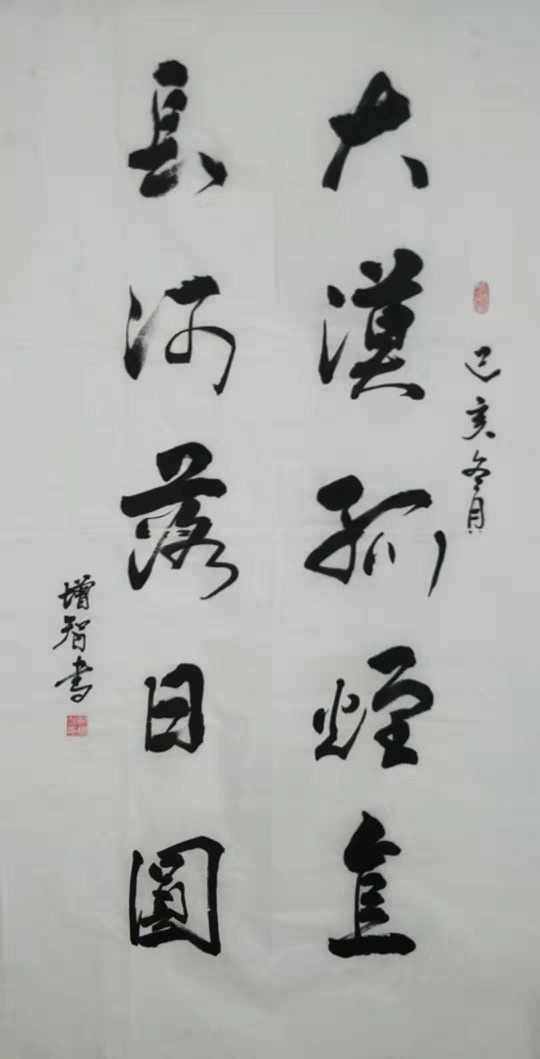 己亥冬月
大漠孤煙直
長河落日圓
增智書